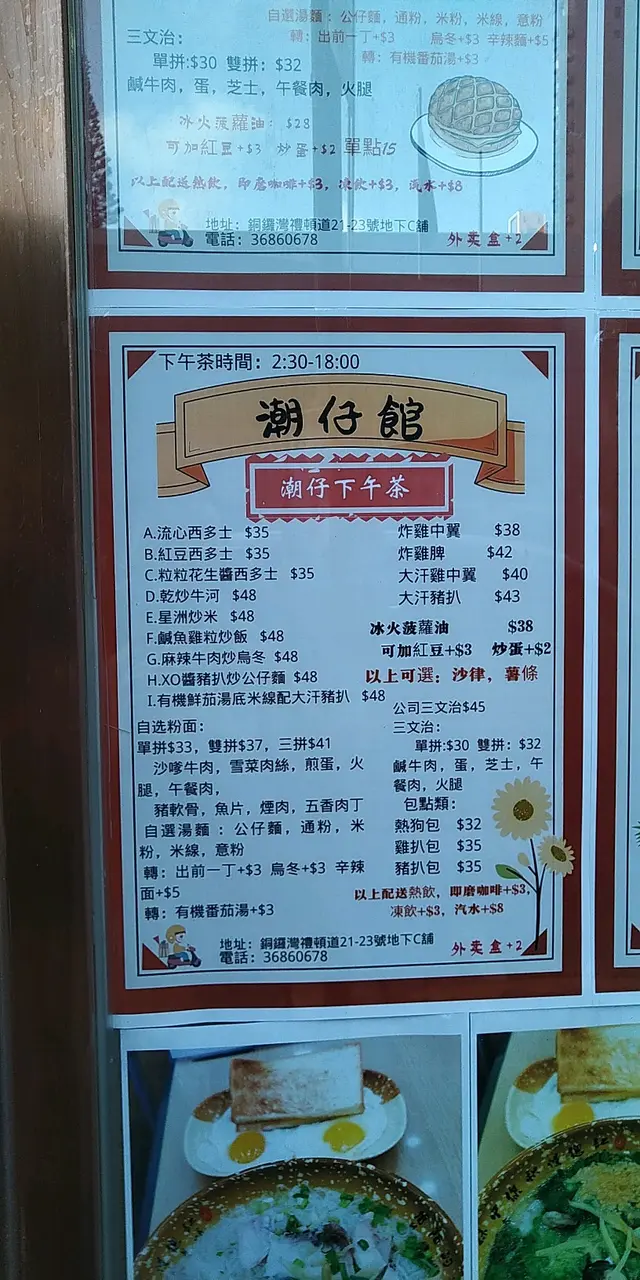 自選湯麵：公仔麵，通粉，米粉，米線，意粉
轉：出前一丁+$3 烏冬+$3 辛辣麵+$5
轉：有機番茄湯+$3
三文治：
單拼:$30 雙拼：$32
鹹牛肉，蛋，芝士，午餐肉，火腿
冰火菠蘿油：$28
可加紅豆+$3 炒蛋+$2 單點15
以上配送熱飲，即磨咖啡+$3，凍飲+$3，汽水+$8
地址：銅鑼灣禮頓道21-23號地下C舖
電話：36860678
外卖盒+2
下午茶時間：2:30-18:00
潮仔館
潮仔下午茶
A.流心西多士 $35
B.紅豆西多士 $35
C.粒粒花生醬西多士 $35
D.乾炒牛河 $48
E.星洲炒米 $48
F.鹹魚雞粒炒飯 $48
G.麻辣牛肉炒烏冬 $48
H.XO醬豬扒炒公仔麵 $48
I.有機鮮茄湯底米線配大汗豬扒 $48
自选粉面：
單拼$33，雙拼$37，三拼$41
沙嗲牛肉，雪菜肉絲，煎蛋，火
腿，午餐肉，
豬軟骨，魚片，煙肉，五香肉丁
自選湯麵：公仔麵，通粉，米
粉，米線，意粉
轉：出前一丁+$3 烏冬+$3 辛辣
面+$5
轉：有機番茄湯+$3
炸雞中翼 $38
炸雞脾 $42
大汗雞中翼 $40
大汗豬扒 $43
冰火菠蘿油 $38
可加紅豆+$3 炒蛋+$2
以上可選：沙律，薯條
公司三文治$45
三文治：
單拼:$30 雙拼：$32
鹹牛肉，蛋，芝士，午
餐肉，火腿
包點類：
熱狗包 $32
雞扒包 $35
豬扒包 $35
以上配送熱飲，即磨咖啡+$3，
凍飲+$3，汽水+$8
地址：銅鑼灣禮頓道21-23號地下C舖
電話：36860678
外卖盒+2